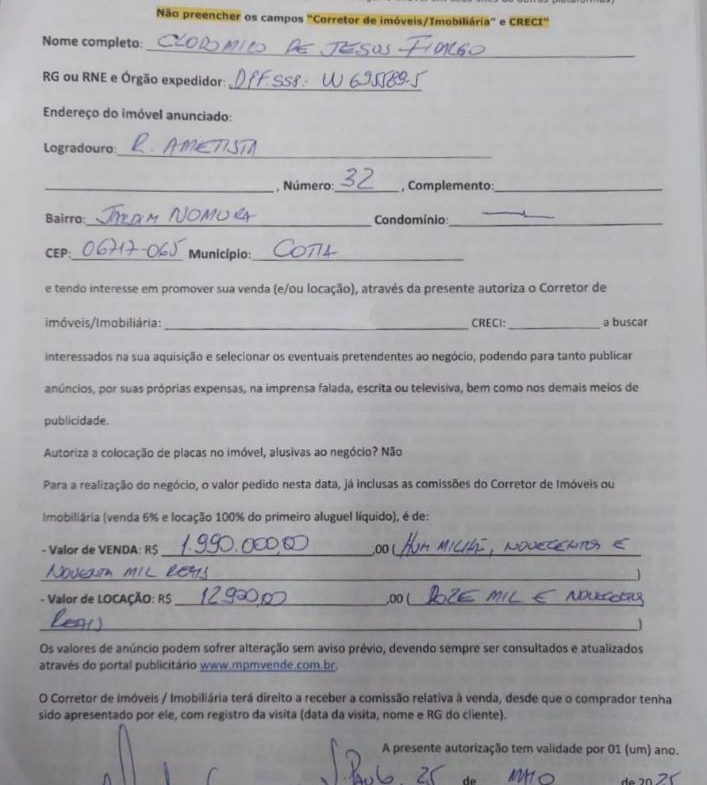 Não preencher os campos "Corretor de imóveis/Imobiliária" e CRECI"
Nome completo: CLODOMILO DE JESUS FIDALGO
RG ou RNE e Órgão expedidor: DPF.SSP: W695589-5
Endereço do imóvel anunciado:
Logradouro: R. AMETISTA
, Número: 32 , Complemento:
Bairro: JARDIM NOMURA Condomínio: —
CEP: 06717-065 Município: COTIA
e tendo interesse em promover sua venda (e/ou locação), através da presente autoriza o Corretor de
imóveis/Imobiliária: CRECI: a buscar
interessados na sua aquisição e selecionar os eventuais pretendentes ao negócio, podendo para tanto publicar
anúncios, por suas próprias expensas, na imprensa falada, escrita ou televisiva, bem como nos demais meios de
publicidade.
Autoriza a colocação de placas no imóvel, alusivas ao negócio? Não
Para a realização do negócio, o valor pedido nesta data, já inclusas as comissões do Corretor de Imóveis ou
Imobiliária (venda 6% e locação 100% do primeiro aluguel líquido), é de:
- Valor de VENDA: R$ 1.990.000,00 ,00 ( HUM MILHÃO, NOVECENTOS E
NOVENTA MIL REAIS )
- Valor de LOCAÇÃO: R$ 12900,00 ,00 ( DOZE MIL E NOVECENTOS
REAIS )
Os valores de anúncio podem sofrer alteração sem aviso prévio, devendo sempre ser consultados e atualizados
através do portal publicitário www.mpmvende.com.br.
O Corretor de imóveis / Imobiliária terá direito a receber a comissão relativa à venda, desde que o comprador tenha
sido apresentado por ele, com registro da visita (data da visita, nome e RG do cliente).
A presente autorização tem validade por 01 (um) ano.
S. PAULO, 25 de MAIO de 2025